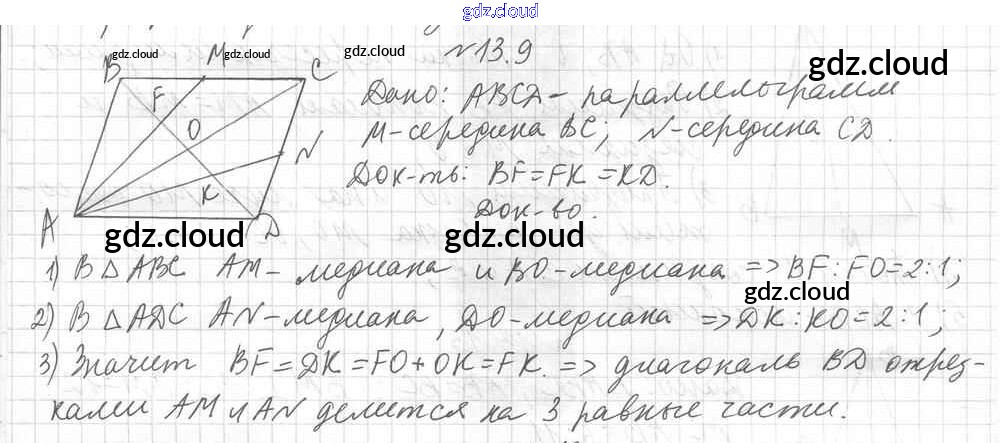 gdz.cloud
gdz.cloud
gdz.cloud
gdz.cloud
№ 13.9
gdz.cloud
B M C
F
O
N
K
A D
Дано: ABCD - параллелограмм
M - середина BC; N - середина CD.
Док-ть: BF = FK = KD.
Док-во.
gdz.cloud
gdz.cloud
gdz.cloud
1) В △ ABC AM - медиана и BO - медиана => BF : FO = 2 : 1;
gdz.cloud
2) В △ ADC AN - медиана, DO - медиана => DK : KO = 2 : 1;
3) Значит BF = DK = FO + OK = FK. => диагональ BD отрез-
ками AM и AN делится на 3 равные части.
gdz.cloud
gdz.cloud